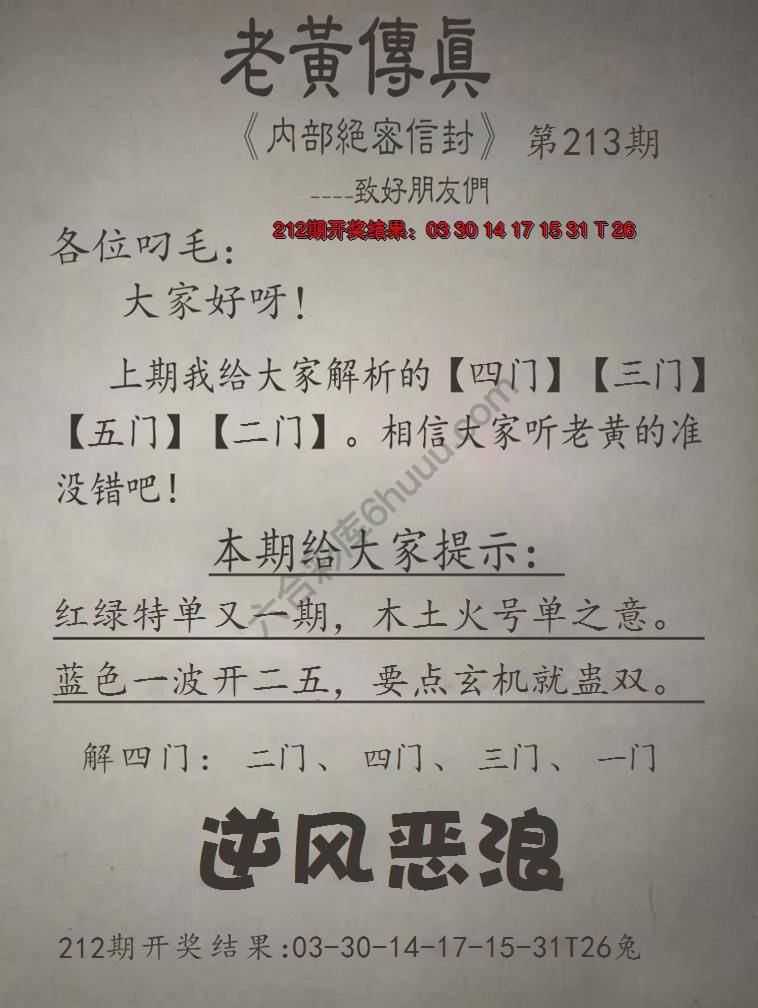 老黃傳眞
《内部絕密信封》 第213期
----致好朋友們
212期开奖结果：03 30 14 17 15 31 T 26
各位叼毛：
大家好呀！
上期我给大家解析的【四门】【三门】
【五门】【二门】。相信大家听老黄的准
没错吧！
本期给大家提示：
红绿特单又一期，木土火号单之意。
蓝色一波开二五，要点玄机就蛊双。
解四门： 二门、 四门、 三门、 一门
逆风恶浪
212期开奖结果:03-30-14-17-15-31T26兔
六合彩库6huuu.com